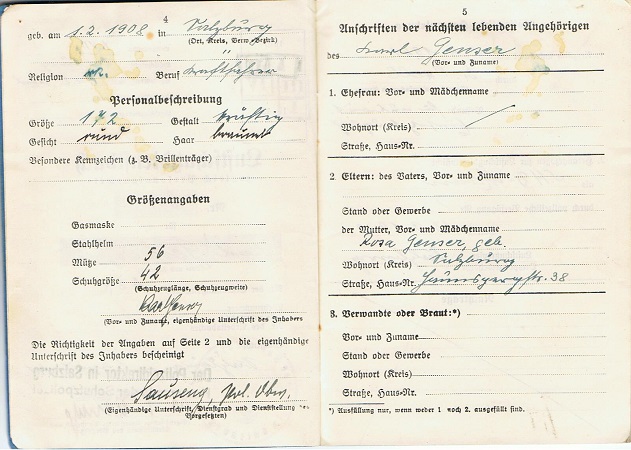 4
geb. am 1.2.1908 in Salzburg
(Ort, Kreis, Verw.-Bezirk)
Religion rk. Beruf Kraftfahrer
Personalbeschreibung
Größe 172 Gestalt kräftig
Gesicht rund Haar braun
Besondere Kennzeichen (z. B. Brillenträger)
Größenangaben
Gasmaske
Stahlhelm
Mütze 56
Schuhgröße 42
(Schuhzeuglänge, Schuhzeugweite)
Karl Genser
(Vor- und Zuname, eigenhändige Unterschrift des Inhabers
Die Richtigkeit der Angaben auf Seite 2 und die eigenhändige
Unterschrift des Inhabers bescheinigt
(Eigenhändige Unterschrift, Dienstgrad und Dienststellung des
Vorgesetzten)
5
Anschriften der nächsten lebenden Angehörigen
des Karl Genser
(Vor- und Zuname)
1. Ehefrau: Vor- und Mädchenname
Wohnort (Kreis)
Straße, Haus-Nr.
2 Eltern: des Vaters, Vor- und Zuname
Stand oder Gewerbe
der Mutter, Vor- und Mädchenname
Rosa Genser, geb.
Wohnort (Kreis) Salzburg
Straße, Haus-Nr. Haunspergstr. 38
3. Verwandte oder Braut:*)
Vor- und Zuname
Stand oder Gewerbe
Wohnort (Kreis)
Straße, Haus-Nr.
*) Ausfüllung nur, wenn weder 1 noch 2. ausgefüllt sind.